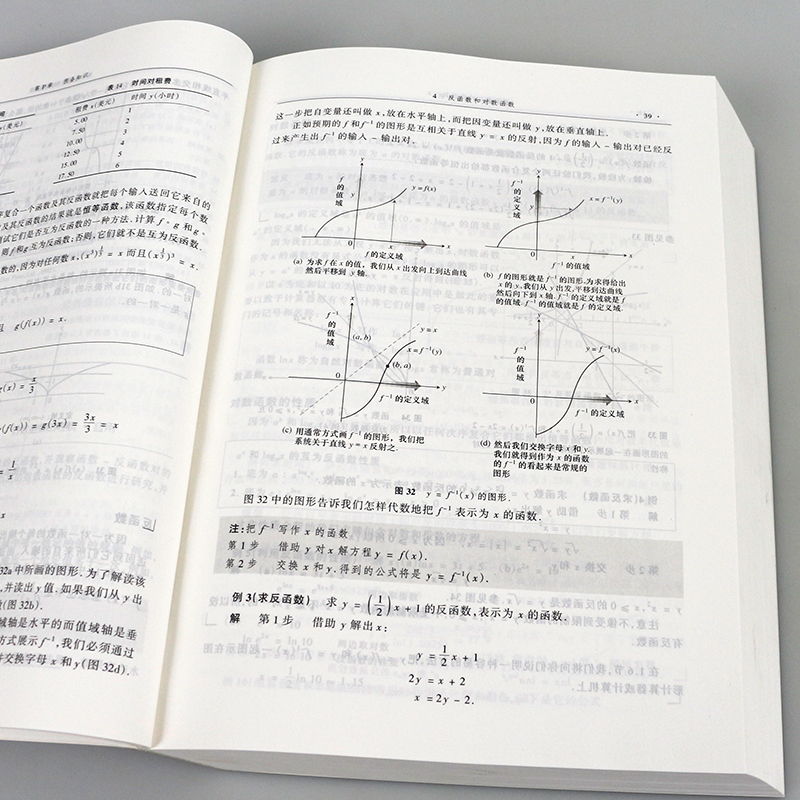 第零章 预备知识
表 14 时间对租费
租费 x(美元) 时间 y(小时)
5.00 1
7.50 2
10.00 3
12.50 4
15.00 5
17.50 6
复合一个函数及其反函数就把每个输入送回它来自的
及其反函数的结果就是恒等函数,该函数指定每个数
测试它们是否互为反函数的一种方法.计算 f∘g 和 g∘
则 f 和 g 互为反函数;否则,它们就不是互为反函数.
数的,因为对任何数 x,(x³)^{1/3} = x 而且(x^{1/3})³ = x.
且 g(f(x)) = x.
g(x) = x/3
g(f(x)) = g(3x) = 3x/3 = x
32a 中所画的图形.为了解读该
并读出 y 值.如果我们从 y 出
数(图 32b).
域轴是水平的而值域轴是垂
方式展示 f⁻¹,我们必须通过
并交换字母 x 和 y(图 32d).
4 反函数和对数函数
· 39 ·
这一步把自变量还叫做 x,放在水平轴上,而把因变量还叫做 y,放在垂直轴上.
正如预期的 f 和 f⁻¹ 的图形是互相关于直线 y = x 的反射,因为 f 的输入－输出对已经反
过来产生出 f⁻¹ 的输入－输出对.
y
f 的值域
y=f(x)
y
0
x
x
f 的定义域
(a) 为求 f 在 x 的值,我们从 x 出发向上到达曲线
然后平移到 y 轴.
y
f⁻¹ 的定义域
x=f⁻¹(y)
y
0
x
x
f⁻¹ 的值域
(b) f 的图形就是 f⁻¹ 的图形.为求得给出
x 的 y,我们从 y 出发,平移到达曲线
然后向下到 x 轴.f⁻¹ 的定义域就是 f
的值域.f⁻¹ 的值域就是 f 的定义域.
x
f⁻¹ 的值域
(a, b)
y=x
x=f⁻¹(y)
(b, a)
0
y
f⁻¹ 的定义域
(c) 用通常方式画 f⁻¹ 的图形,我们把
系统关于直线 y = x 反射之.
y
f⁻¹ 的值域
y=f⁻¹(x)
0
x
f⁻¹ 的定义域
(d) 然后我们交换字母 x 和 y.
我们就得到作为 x 的函数
的 f⁻¹ 的看起来是常规的
图形
图 32 y = f⁻¹(x) 的图形.
图 32 中的图形告诉我们怎样代数地把 f⁻¹ 表示为 x 的函数.
注:把 f⁻¹ 写作 x 的函数
第 1 步 借助 y 对 x 解方程 y = f(x).
第 2 步 交换 x 和 y.得到的公式将是 y = f⁻¹(x).
例 3(求反函数) 求 y = (1/2)x + 1 的反函数,表示为 x 的函数.
解 第 1 步 借助 y 解出 x:
y = 1/2 x + 1
2y = x + 2
x = 2y - 2.